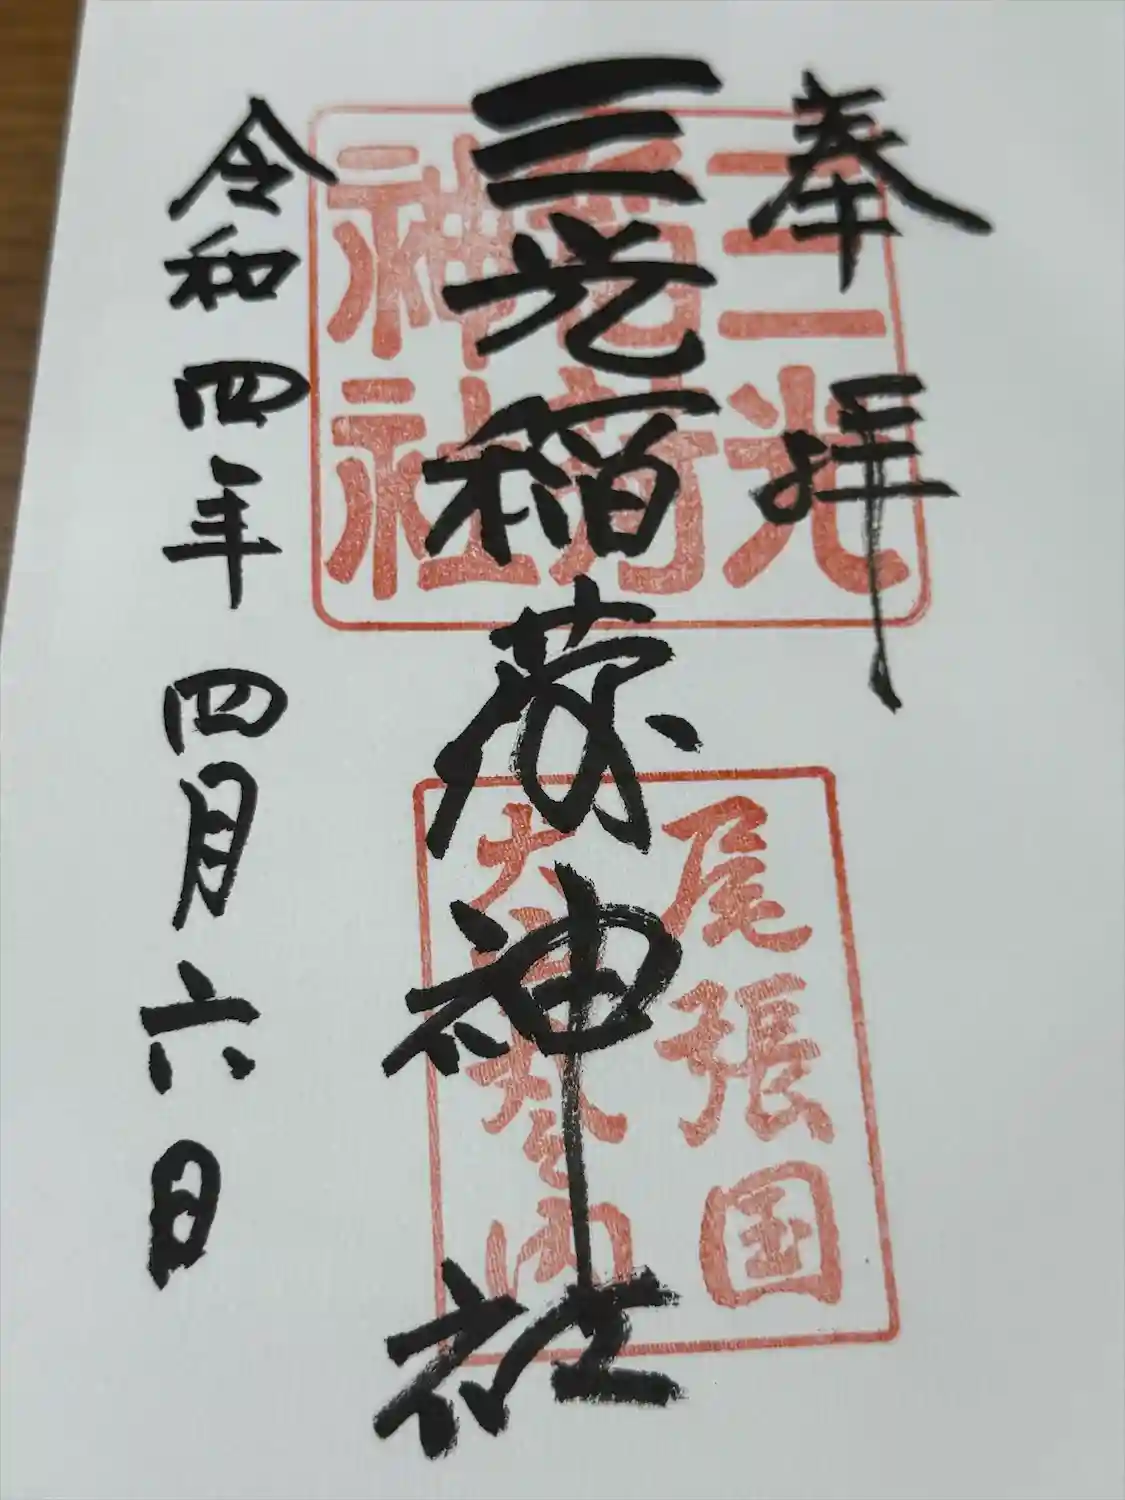 奉拝
三光稲荷神社
令和四年四月六日
三光
稲荷
神社
尾張国
犬山